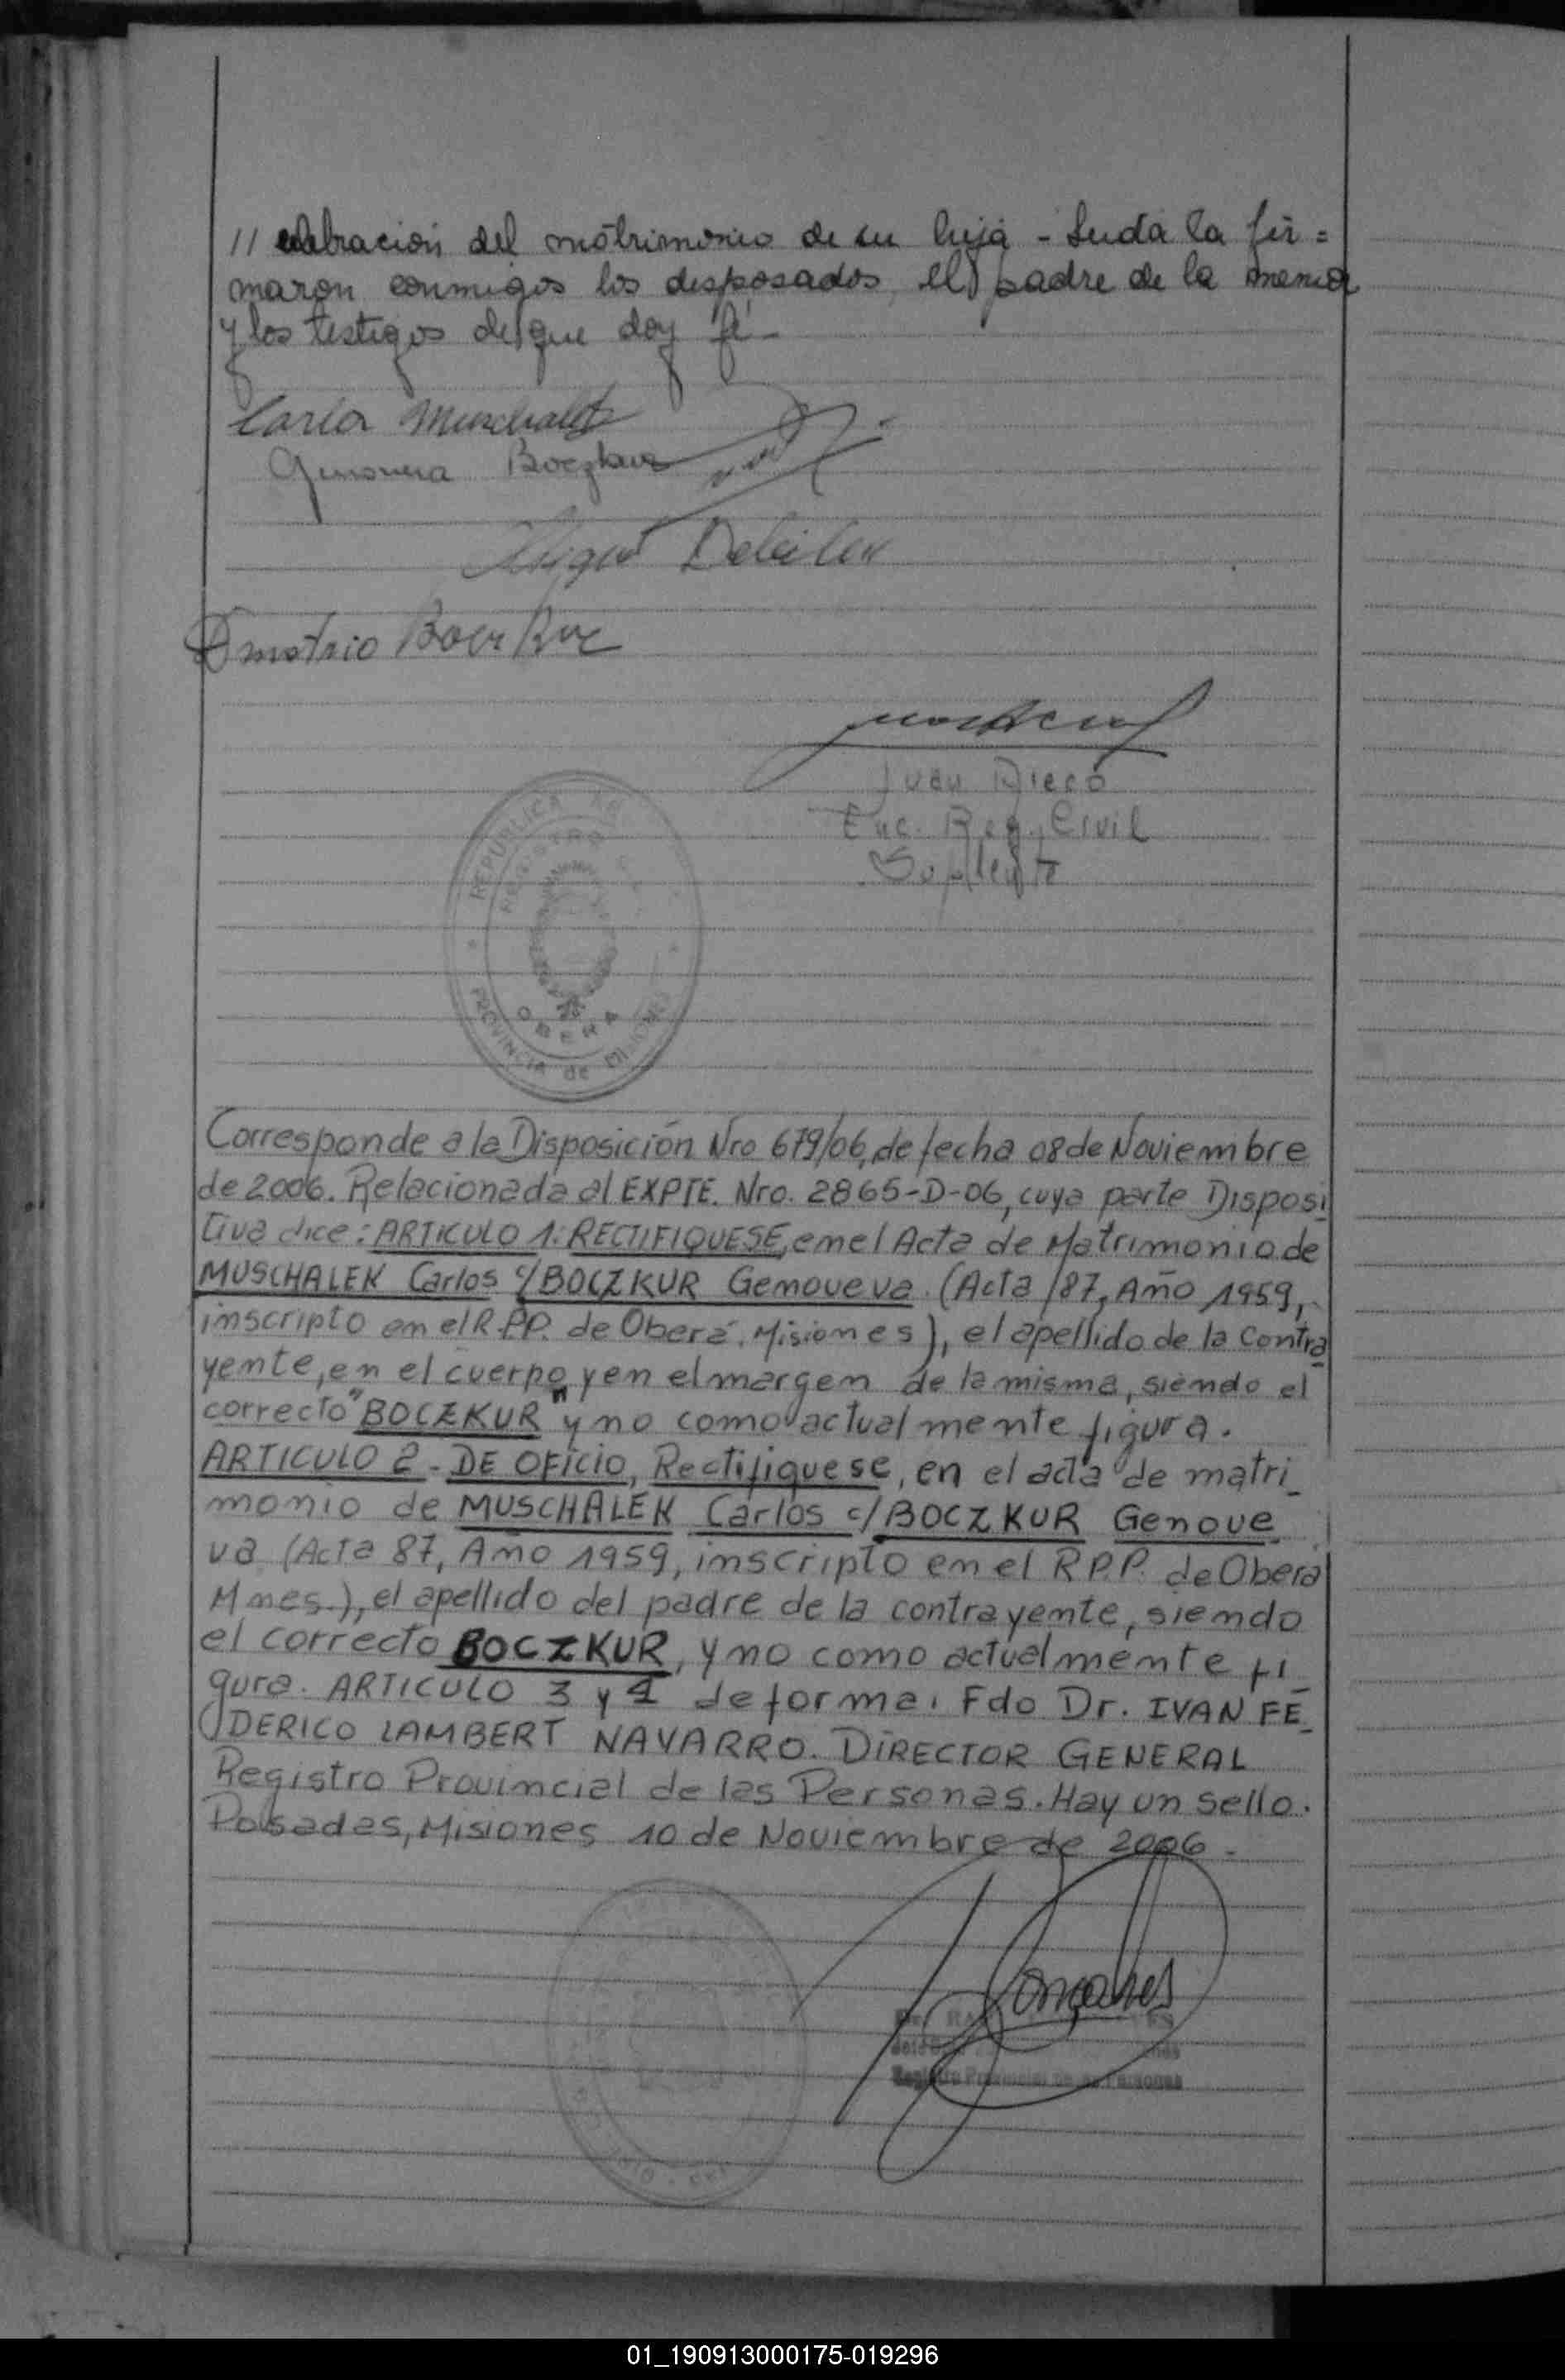 // celebración del matrimonio de su hija - Leida la fir=
maron conmigo los desposados, el padre de la menor
y los testigos de que doy fé-
Carlos Muschalek
Genoveva Boczkur
Dmotrio Boczkur
Juan
Enc. Reg. Civil
Suplente
REPUBLICA AR
REGISTRO
OBERA
PROVINCIA de MISIONES
Corresponde a la Disposición Nro 679/06, de fecha 08 de Noviembre
de 2006. Relacionada al EXPTE. Nro. 2865-D-06, cuya parte Disposi
tiva dice: ARTICULO 1: RECTIFIQUESE, en el Acta de Matrimonio de
MUSCHALEK Carlos c/BOCZKUR Genoveva (Acta 187, Año 1959,
inscripto en el R.P.P. de Oberá. Misiones), el apellido de la Contra
yente, en el cuerpo y en el margen de la misma, siendo el
correcto "BOCZKUR" y no como actualmente figura.
ARTICULO 2 - DE OFICIO, Rectifiquese, en el acta de matri_
monio de MUSCHALEK Carlos c/BOCZKUR Genove
va (Acta 87, Año 1959, inscripto en el R.P.P. de Oberá
Mnes.), el apellido del padre de la contrayente, siendo
el correcto BOCZKUR, y no como actualmente fi_
gura. ARTICULO 3 y 4 de forma. Fdo Dr. IVAN FE_
DERICO LAMBERT NAVARRO. DIRECTOR GENERAL
Registro Provincial de las Personas. Hay un sello.
Posadas, Misiones 10 de Noviembre de 2006.
Registro Provincial de las Personas
01_190913000175-019296